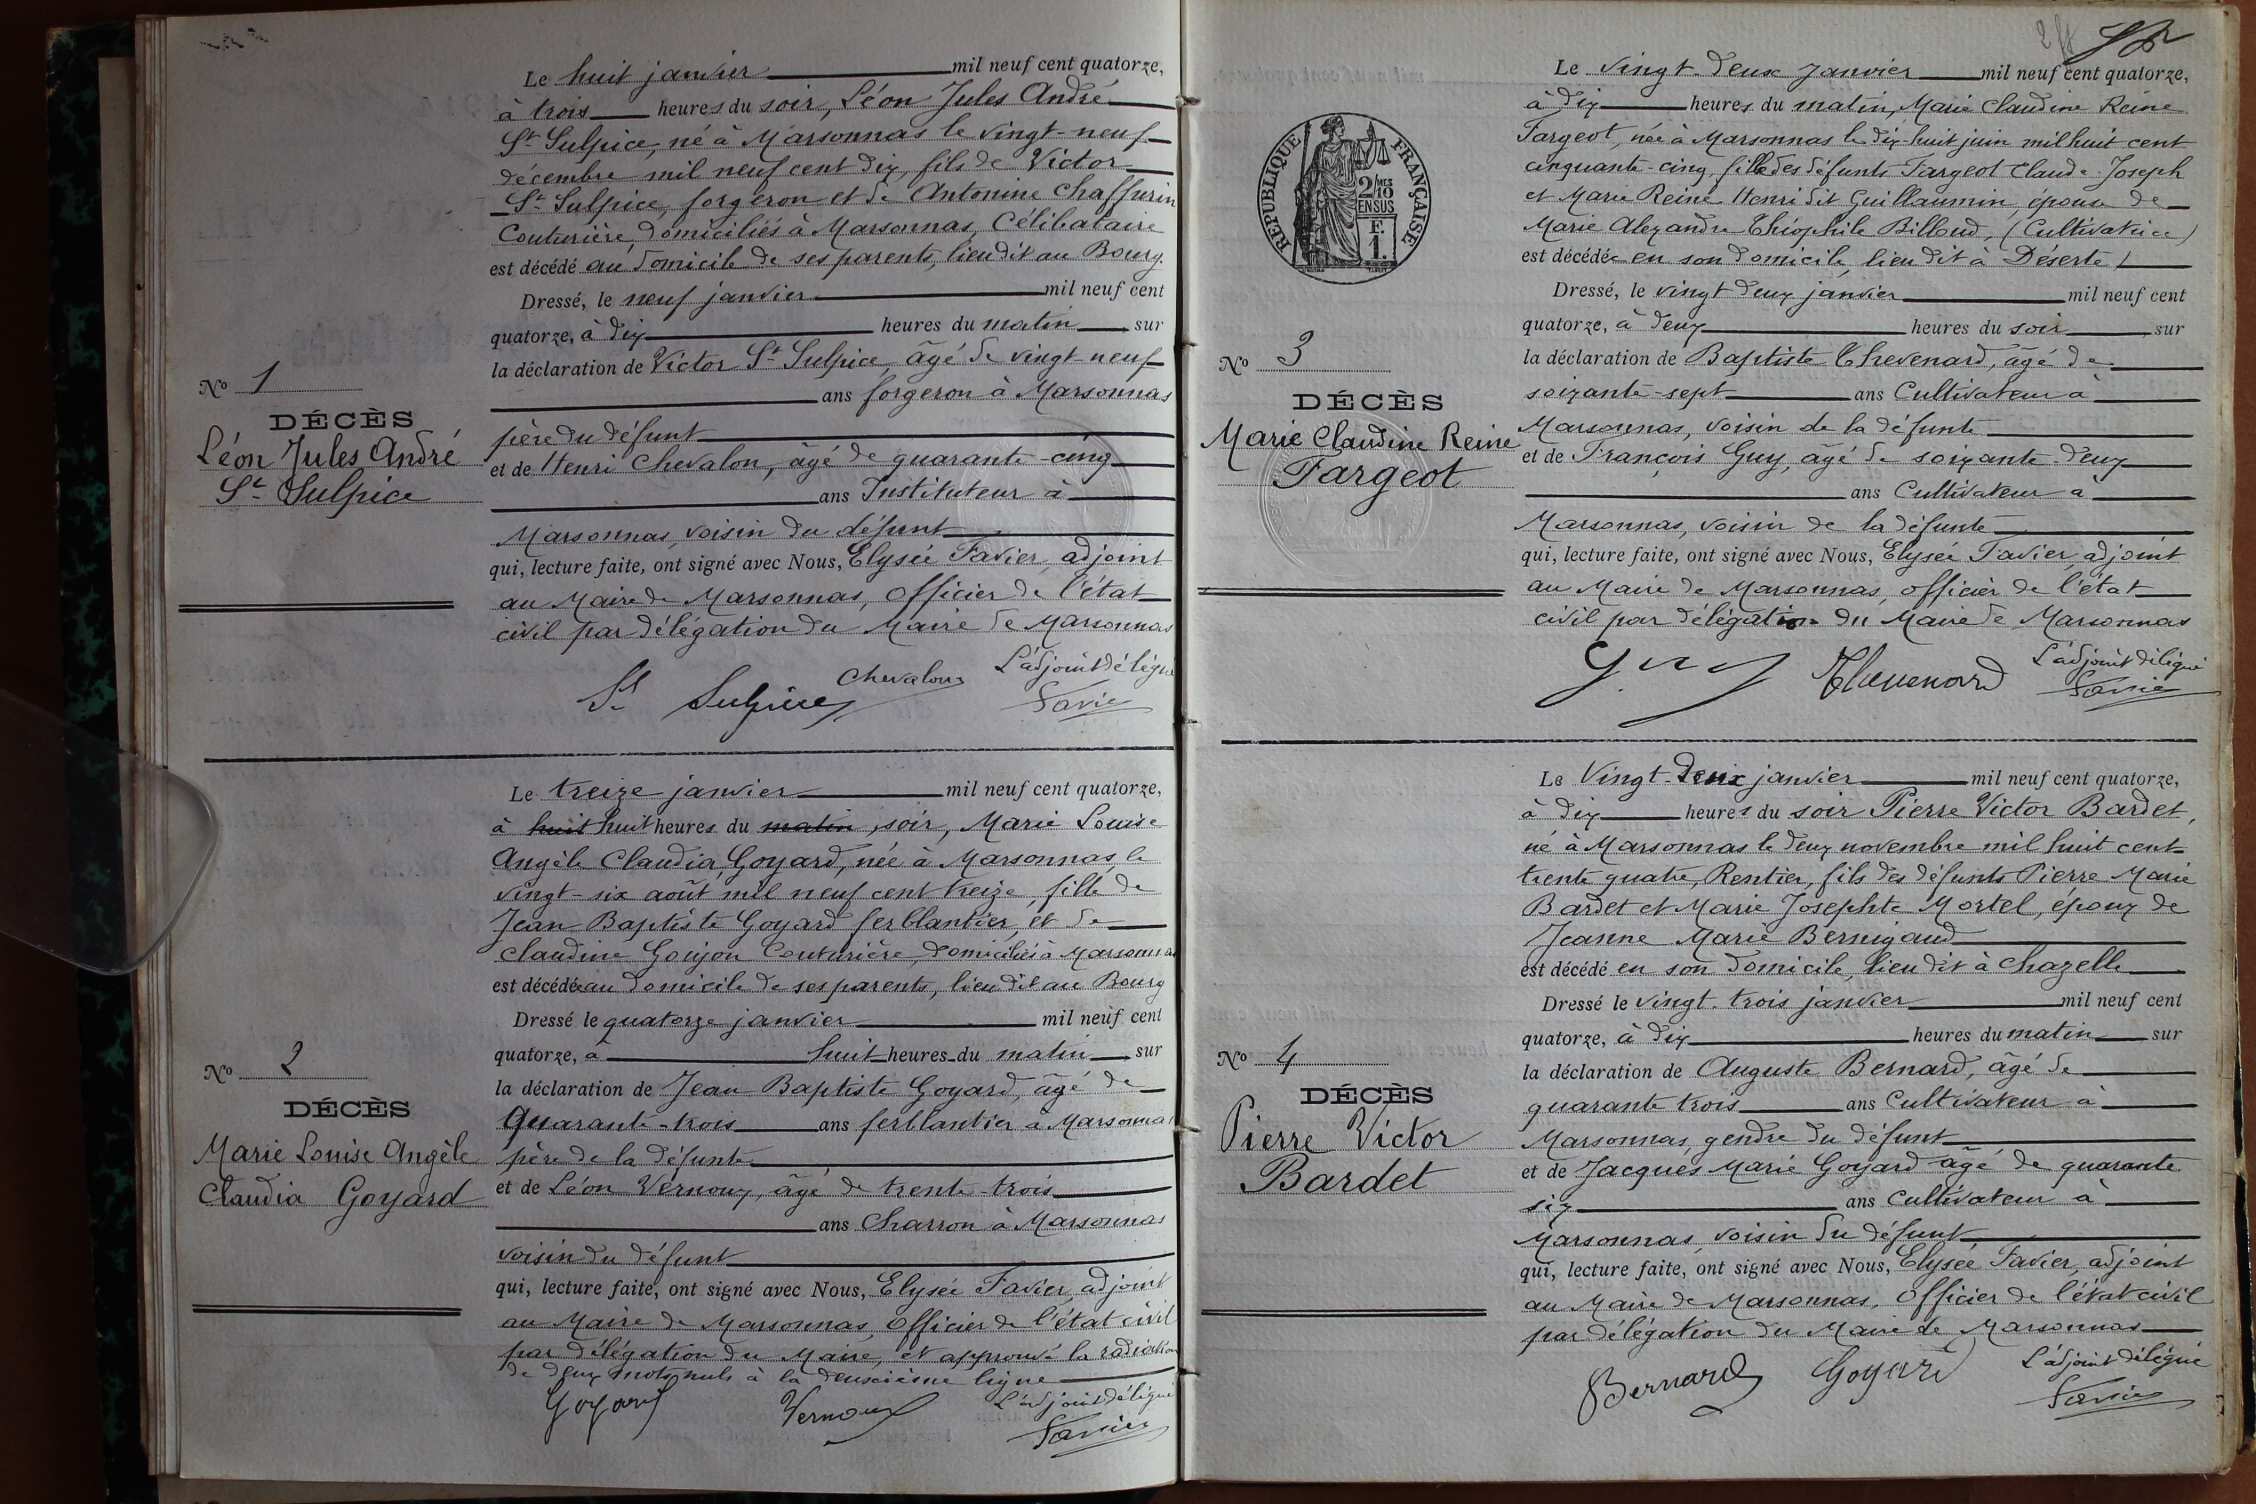 Le huit janvier mil neuf cent quatorze,
à trois heures du soir, Léon Jules André
St Sulpice, né à Marsonnas le vingt-neuf
décembre mil neuf cent dix, fils de Victor
St Sulpice, forgeron et de Antonine Chaffurin
Couturière, domiciliés à Marsonnas, Célibataire
est décédé au domicile de ses parents, lieu dit au Bourg.
Dressé, le neuf janvier mil neuf cent
quatorze, à dix heures du matin sur
la déclaration de Victor St Sulpice, âgé de vingt-neuf
ans forgeron à Marsonnas
père du défunt
et de Henri Chevalon, âgé de quarante-cinq
ans Instituteur à
Marsonnas, voisin du défunt
qui, lecture faite, ont signé avec Nous, Elysée Favier, adjoint
au Maire de Marsonnas, Officier de l'état
civil par délégation du Maire de Marsonnas
L'adjoint délégué
St Sulpice Chevalon Favier
No 1
DÉCÈS
Léon Jules André
St Sulpice
Le treize janvier mil neuf cent quatorze,
à huit huit heures du matin, soir, Marie Louise
Angèle Claudia Goyard, née à Marsonnas, le
vingt-six août mil neuf cent treize, fille de
Jean Baptiste Goyard ferblantier, et de
Claudine Goujon Couturière, domiciliés à Marsonnas
est décédée au domicile de ses parents, lieu dit au Bourg
Dressé le quatorze janvier mil neuf cent
quatorze, à huit heures du matin sur
la déclaration de Jean Baptiste Goyard, âgé de
quarante-trois ans ferblantier à Marsonnas
père de la défunte
et de Léon Vernoux, âgé de trente-trois
ans Charron à Marsonnas
voisin du défunt
qui, lecture faite, ont signé avec Nous, Elysée Favier, adjoint
au Maire de Marsonnas, Officier de l'état civil
par délégation du Maire, et approuvé la radiation
de deux mots nuls à la deuxième ligne
L'adjoint délégué
Goyard Vernoux Favier
No 2
DÉCÈS
Marie Louise Angèle
Claudia Goyard
RÉPUBLIQUE FRANÇAISE
2/10MES
EN SUS
F.
1.
Le vingt-deux janvier mil neuf cent quatorze,
à dix heures du matin, Marie Claudine Reine
Fargeot, née à Marsonnas le dix-huit juin mil huit cent
cinquante-cinq, fille des défunts Fargeot Claude Joseph
et Marie Reine Henri dit Guillaumin, épouse de
Marie Alexandre Théophile Billoud, (Cultivatrice)
est décédée en son domicile, lieu dit à Déserte
Dressé, le vingt deux janvier mil neuf cent
quatorze, à deux heures du soir, sur
la déclaration de Baptiste Thevenard, âgé de
soixante-sept ans Cultivateur à
Marsonnas, voisin de la défunte
et de François Guy, âgé de soixante-deux
ans Cultivateur à
Marsonnas, voisin de la défunte
qui, lecture faite, ont signé avec Nous, Elysée Favier, adjoint
au Maire de Marsonnas, officier de l'état
civil par délégation du Maire de Marsonnas
L'adjoint délégué
Guy Thevenard Favier
No 3
DÉCÈS
Marie Claudine Reine
Fargeot
Le Vingt-Deux janvier mil neuf cent quatorze,
à dix heures du soir Pierre Victor Bardet,
né à Marsonnas le deux novembre mil huit cent
trente quatre, Rentier, fils des défunts Pierre Marie
Bardet et Marie Josephte Mortel, époux de
Jeanne Marie Bernigaud
est décédé en son domicile, lieu dit à Chazelle
Dressé le vingt-trois janvier mil neuf cent
quatorze, à dix heures du matin sur
la déclaration de Auguste Bernard, âgé de
quarante trois ans Cultivateur à
Marsonnas, gendre du défunt
et de Jacques Marie Goyard âgé de quarante
six ans cultivateur à
Marsonnas, voisin du défunt
qui, lecture faite, ont signé avec Nous, Elysée Favier, adjoint
au Maire de Marsonnas, Officier de l'état civil
par délégation du Maire de Marsonnas
L'adjoint délégué
Bernard Goyard Favier
No 4
DÉCÈS
Pierre Victor
Bardet